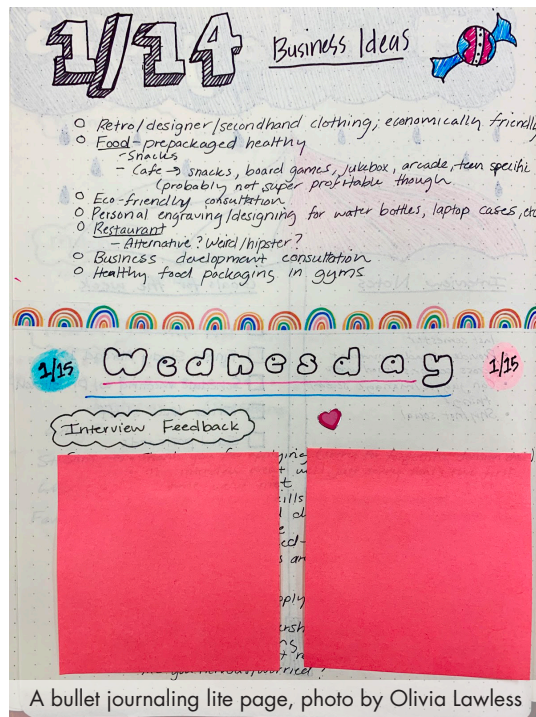 1/14 Business Ideas
Retro/designer/secondhand clothing; economically friendly
Food-prepackaged healthy
-Snacks
- Cafe → snacks, board games, jukebox, arcade, teen specifi
(probably not super profitable though
Eco-friendly consultation
Personal engraving/designing for water bottles, laptop cases, etc
Restaurant
- Alternative? Weird/hipster?
Business development consultation
Healthy food packaging in gyms
1/15 Wednesday 1/15
Interview Feedback
A bullet journaling lite page, photo by Olivia Lawless